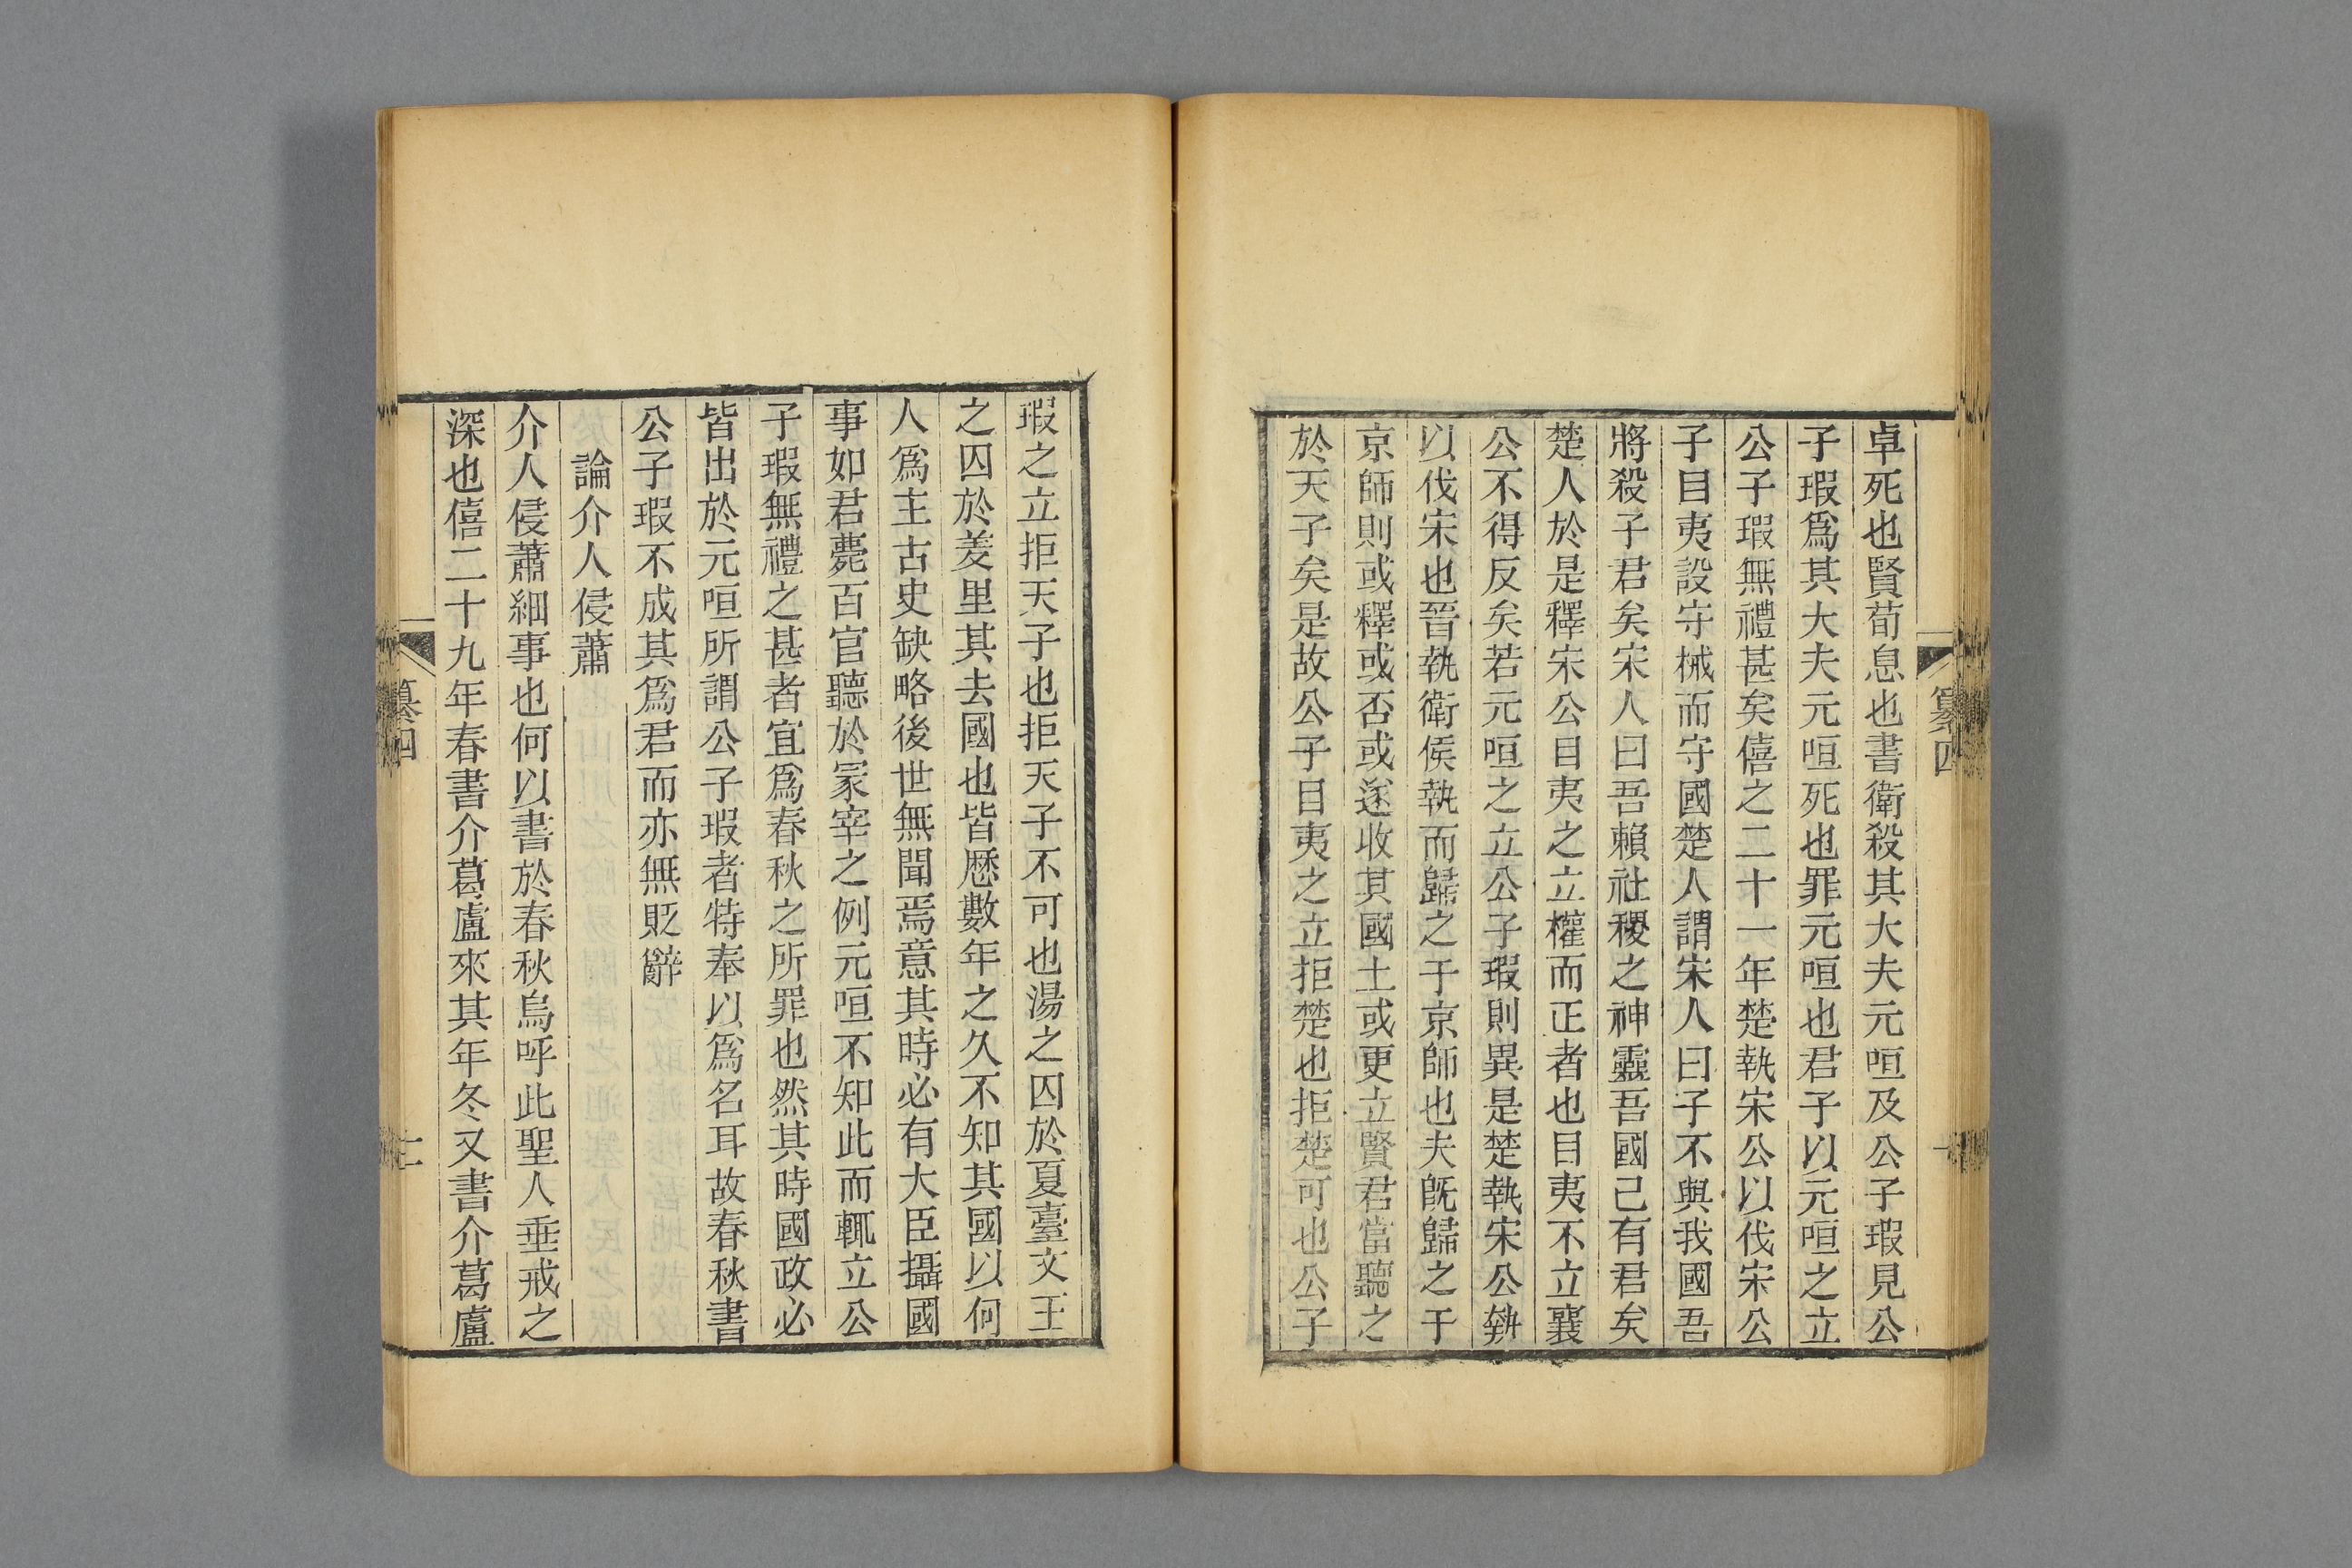 卓死也賢荀息也書衛殺其大夫元咺及公子瑕見公
子瑕爲其大夫元咺死也罪元咺也君子以元咺之立
公子瑕無禮甚矣僖之二十一年楚執宋公以伐宋公
子目夷設守械而守國楚人謂宋人曰子不與我國吾
將殺子君矣宋人曰吾賴社稷之神靈吾國已有君矣
楚人於是釋宋公目夷之立權而正者也目夷不立襄
公不得反矣若元咺之立公子瑕則異是楚執宋公執
以伐宋也晉執衛侯執而歸之于京師也夫旣歸之于
京師則或釋或否或遂收其國土或更立賢君當聽之
於天子矣是故公子目夷之立拒楚也拒楚可也公子
纂四
瑕之立拒天子也拒天子不可也湯之囚於夏臺文王
之囚於羑里其去國也皆歷數年之久不知其國以何
人爲主古史缺略後世無聞焉意其時必有大臣攝國
事如君薨百官聽於冢宰之例元咺不知此而輒立公
子瑕無禮之甚者宜爲春秋之所罪也然其時國政必
皆出於元咺所謂公子瑕者特奉以爲名耳故春秋書
公子瑕不成其爲君而亦無貶辭
論介人侵蕭
介人侵蕭細事也何以書於春秋烏呼此聖人垂戒之
深也僖二十九年春書介葛盧來其年冬又書介葛盧
纂四